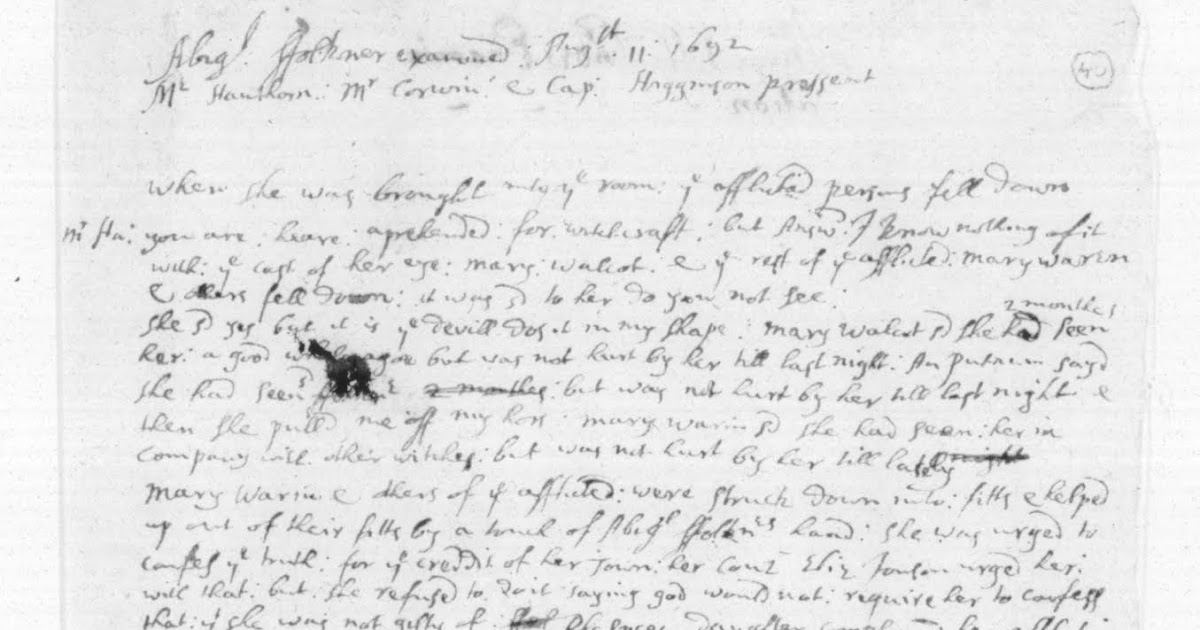 Abigl. ffolkner examined Augst. 11 1692
Mr Hauthorn: Mr Corwin: & Cap: Higginson pressent
When she was brought into ye room: ye afflicted persons fell down
mr Ha: you are: heare: aprehended: for: witchcraft: but Answd: I know nothing of it
with: ye cast of her eye: mary: walcot: & ye rest of ye afflicted: mary warin
& others fell down: it was sd to her do you not see:
2 months
She sd yes but it is ye devill dos it in my shape: mary walcot sd she had seen
her: a good while agoe but was not hurt by her till last night: An Putnam sayd
she had seen 2 months: but was not hurt by her till last night &
then she pulld me off my hors: mary warin sd she had seen: her in
Company with other witches: but was not hurt by her till lately night
mary Warin & others of ye afflicted: were struck down into: fitts & helped
up out of their fitts by a touch of Abigl ffolknrs hand: she was urged to
confes ye truth: for ye creddit of her Town: her Couz Eliz Jonson urged her:
with that: but: she refused to do it saying god would not: require her to confess
that: yt she was not guilty of